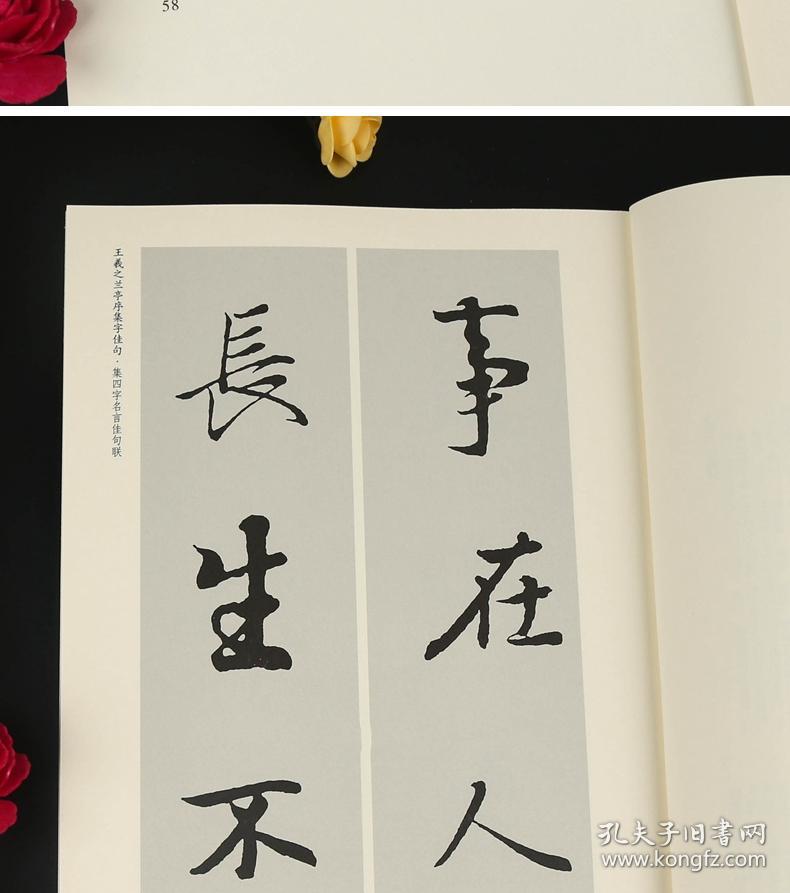 58
王羲之兰亭序集字佳句·集四字名言佳句联
事在人
長生不
孔夫子旧书网
www.kongfz.com